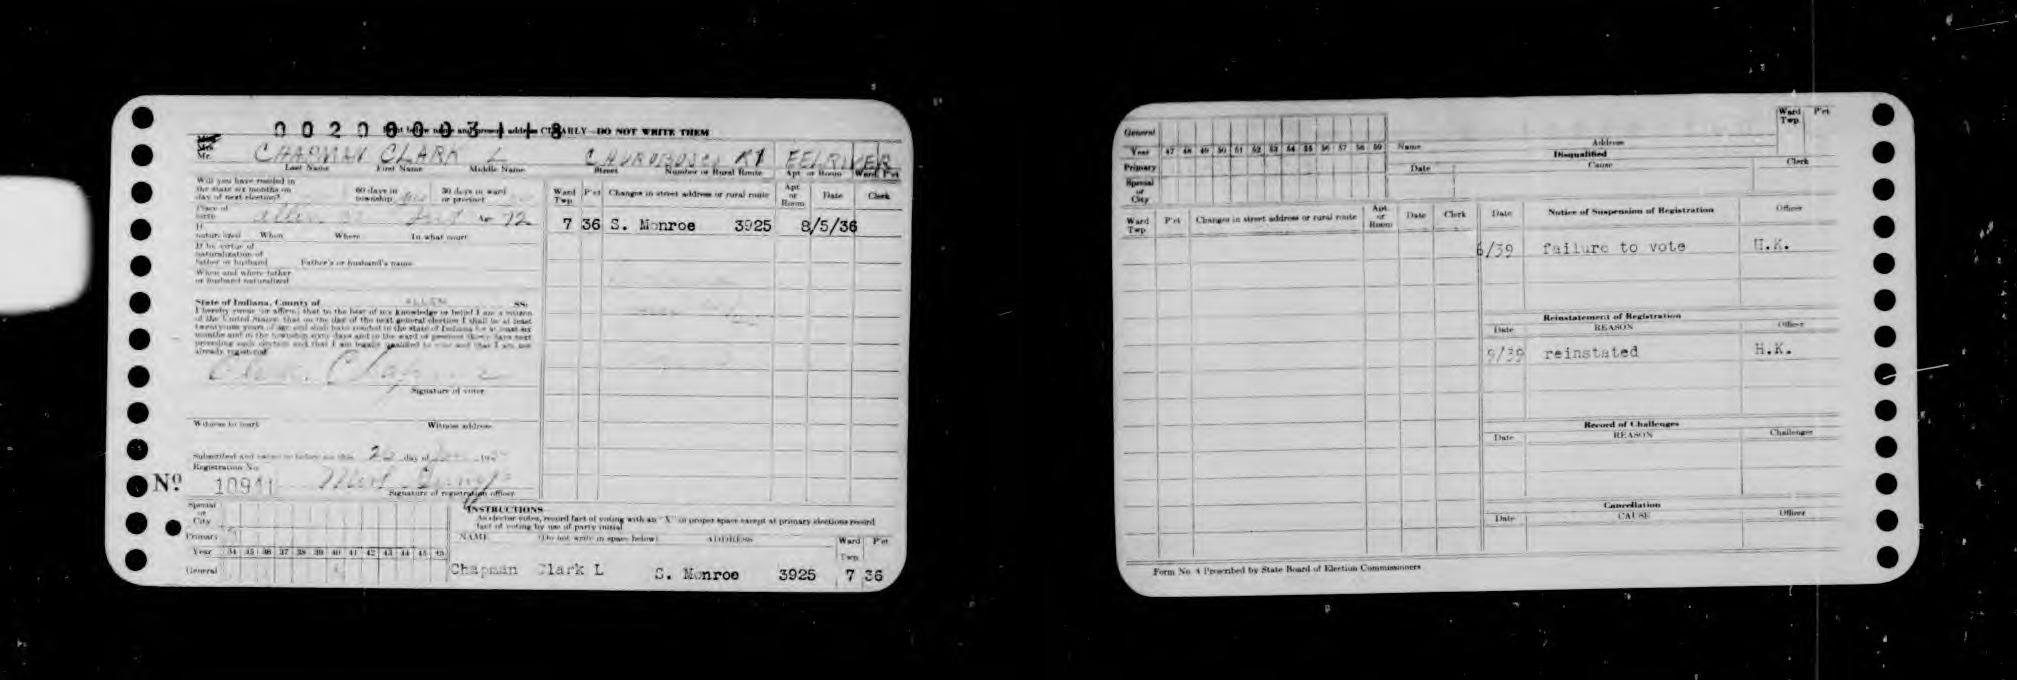 Print below name and present address CLEARLY—DO NOT WRITE THEM
Mr. CHAPMAN CLARK L CHURUBUSCO R1 EELRIVER
Last Name First Name Middle Name Street Number or Rural Route Apt or Room Ward P'ct
Will you have resided in
the state six months on 60 days in 30 days in ward
day of next election? township or precinct
Place of
birth Allen Co Ind Age 72
If
naturalized When Where In what court
If by virtue of
naturalization of
father or husband Father's or husband's name
When and where father
or husband naturalized
State of Indiana, County of ALLEN SS:
I hereby swear (or affirm) that to the best of my knowledge or belief I am a citizen
of the United States; that on the day of the next general election I shall be at least
twenty-one years of age and shall have resided in the state of Indiana for at least six
months and in the township sixty days and in the ward or precinct thirty days next
preceding such election and that I am legally qualified to vote and that I am not
already registered
Clark Chapman
Signature of voter
Witness to mark Witness address
Subscribed and sworn to before me this 20 day of
Registration No.
Nº 10941
Signature of registration officer
Ward Twp. P'ct Changes in street address or rural route Apt. or Room Date Clerk
7 36 S. Monroe 3925 8/5/36
INSTRUCTIONS
As elector votes, record fact of voting with an "X" in proper space except at primary elections record
fact of voting by use of party initial
Special
or
City
Primary
Year 34 35 36 37 38 39 40 41 42 43 44 45 46
General
NAME (Do not write in space below) ADDRESS Ward Twp. P'ct
Chapman Clark L S. Monroe 3925 7 36
General
Year 47 48 49 50 51 52 53 54 55 56 57 58 59
Primary
Special
or
City
Name Address Ward Twp. P'ct
Disqualified
Date Cause Clerk
Ward Twp. P'ct Changes in street address or rural route Apt. or Room Date Clerk
Date Notice of Suspension of Registration Officer
6/39 failure to vote H.K.
Reinstatement of Registration
Date REASON Officer
9/39 reinstated H.K.
Record of Challenges
Date REASON Challenger
Cancellation
Date CAUSE Officer
Form No. 4 Prescribed by State Board of Election Commissioners